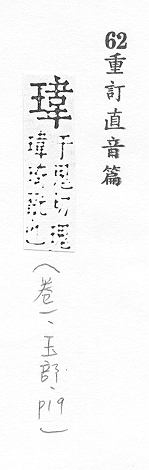 62重訂直音篇
瑋
于鬼切瑰
瑋琦玩也
（卷一、玉部、p19）